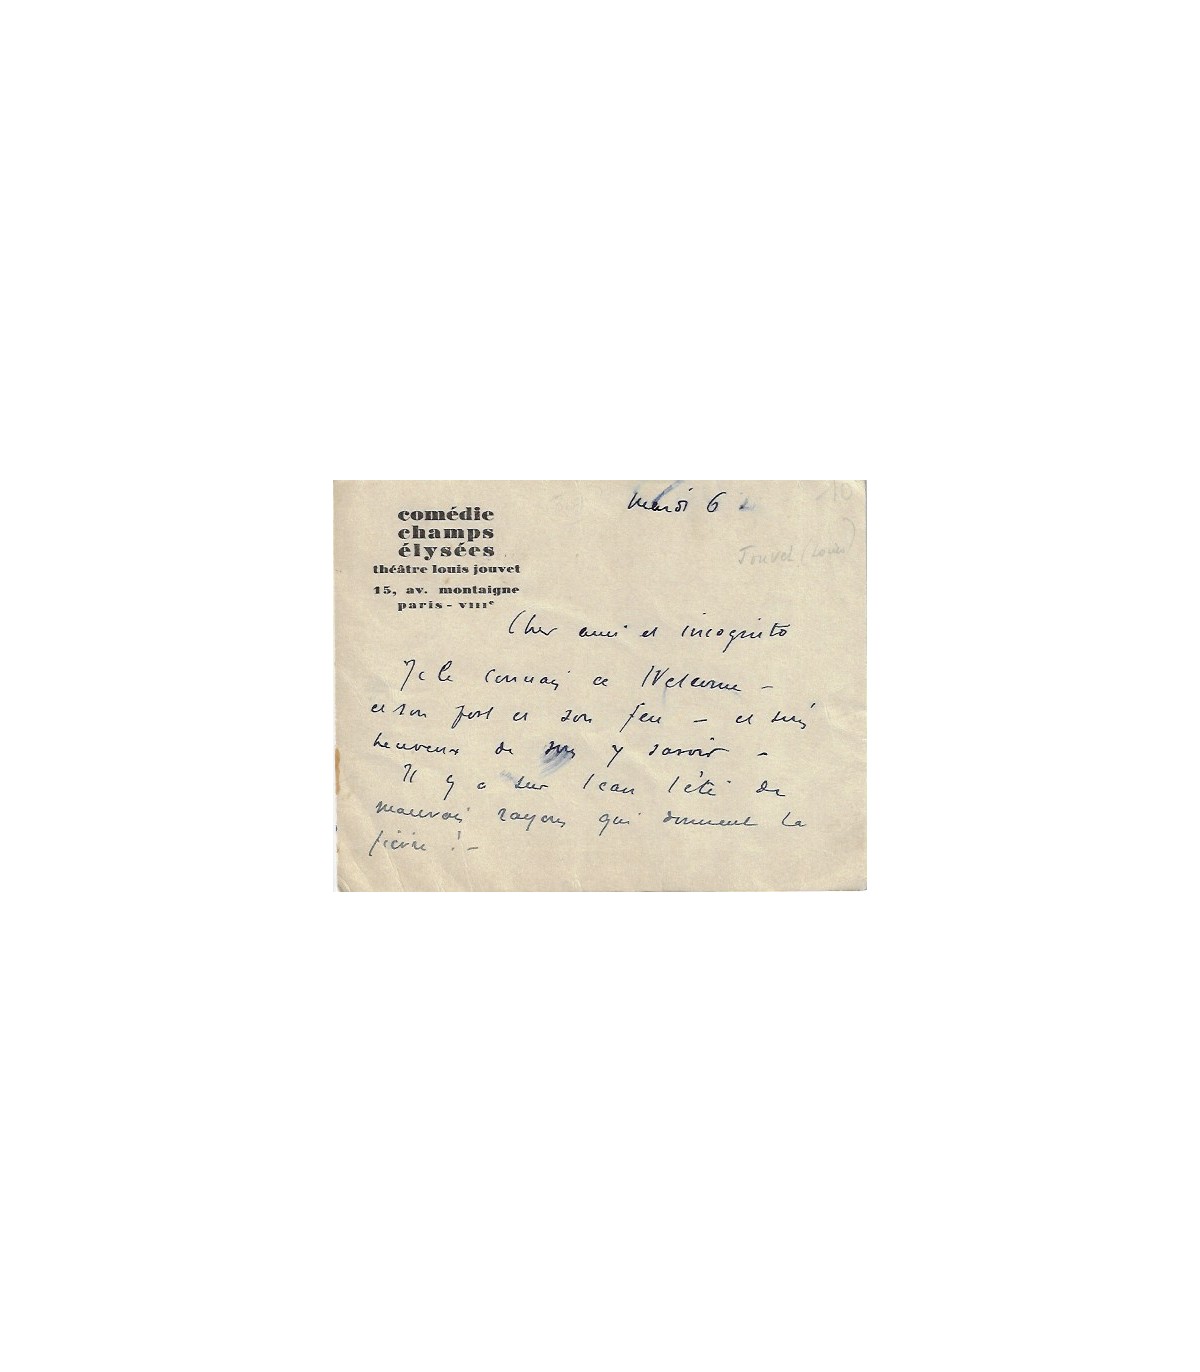 mardi 6
comédie
champs
élysées
théâtre louis jouvet
15, av. montaigne
paris - VIIIe
Jouvet (Louis)
10
Cher ami et incognito
Je le connais ce Welcome -
et son port et son feu - et suis
heureux de vous y savoir -
Il y a sur l'eau l'été de
mauvais rayons qui donnent la
fièvre ! -